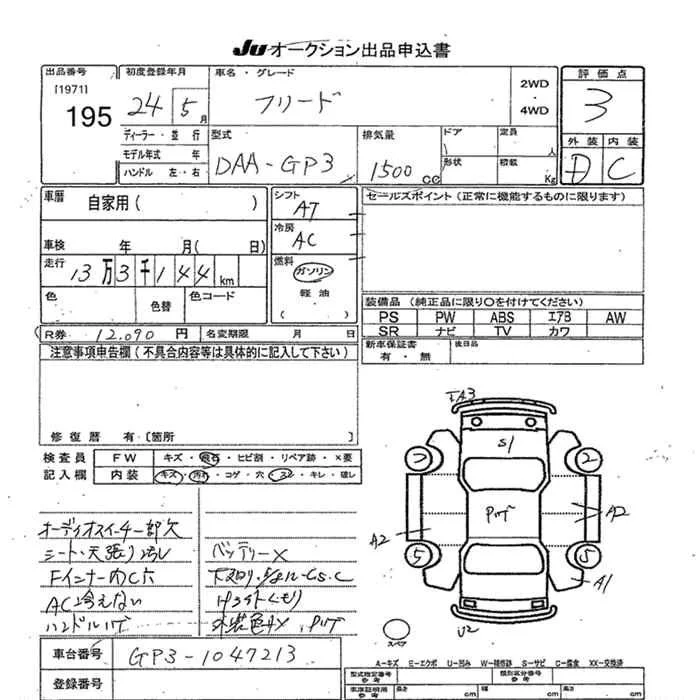 Ju オークション出品申込書
出品番号
[1971]
195
初度登録年月
24 5 月
車名・グレード
フリード
2WD
・
4WD
評価点
3
ディーラー・並行
モデル年式 年
ハンドル 左・右
型式
DAA-GP3
排気量
1500 cc
ドア
定員
人
形状
積載
Kg
外装 内装
D C
車歴
自家用( )
車検 年 月( 日)
走行
13万3千144km
シフト
AT
冷房
AC
燃料
ガソリン
軽油
( )
セールスポイント(正常に機能するものに限ります)
色
色替
色コード
装備品(純正品に限り〇を付けてください)
PS PW ABS エアB AW
SR ナビ TV カワ
R券 12,090 円
名変期限 月 日
新車保証書
有・無
後日品
注意事項申告欄(不具合内容等は具体的に記入して下さい)
修復歴 有・[箇所
検査員
記入欄
FW
キズ・飛石・ヒビ割・リペア跡・×要
内装
キズ・汚れ・コゲ・穴・スレ・キレ・破レ
オーディオスイーチ一部欠
シート・天張り汚レ
Fインナー内C穴
AC冷えない
ハンドルハゲ
バッテリー×
下回り
Hライトくもり
外装色
A3
S1
2
2
ハゲ
A2
A2
5
5
A1
U2
スペア
車台番号
GP3-1047213
登録番号
A-キズ E-エクボ U-凹み W-補修跡 S-サビ C-腐食 XX-交換済
型式指定番号
参考
類別区分番号
参考
車庫証明用
参考
長さ
cm
幅
cm
高さ
cm